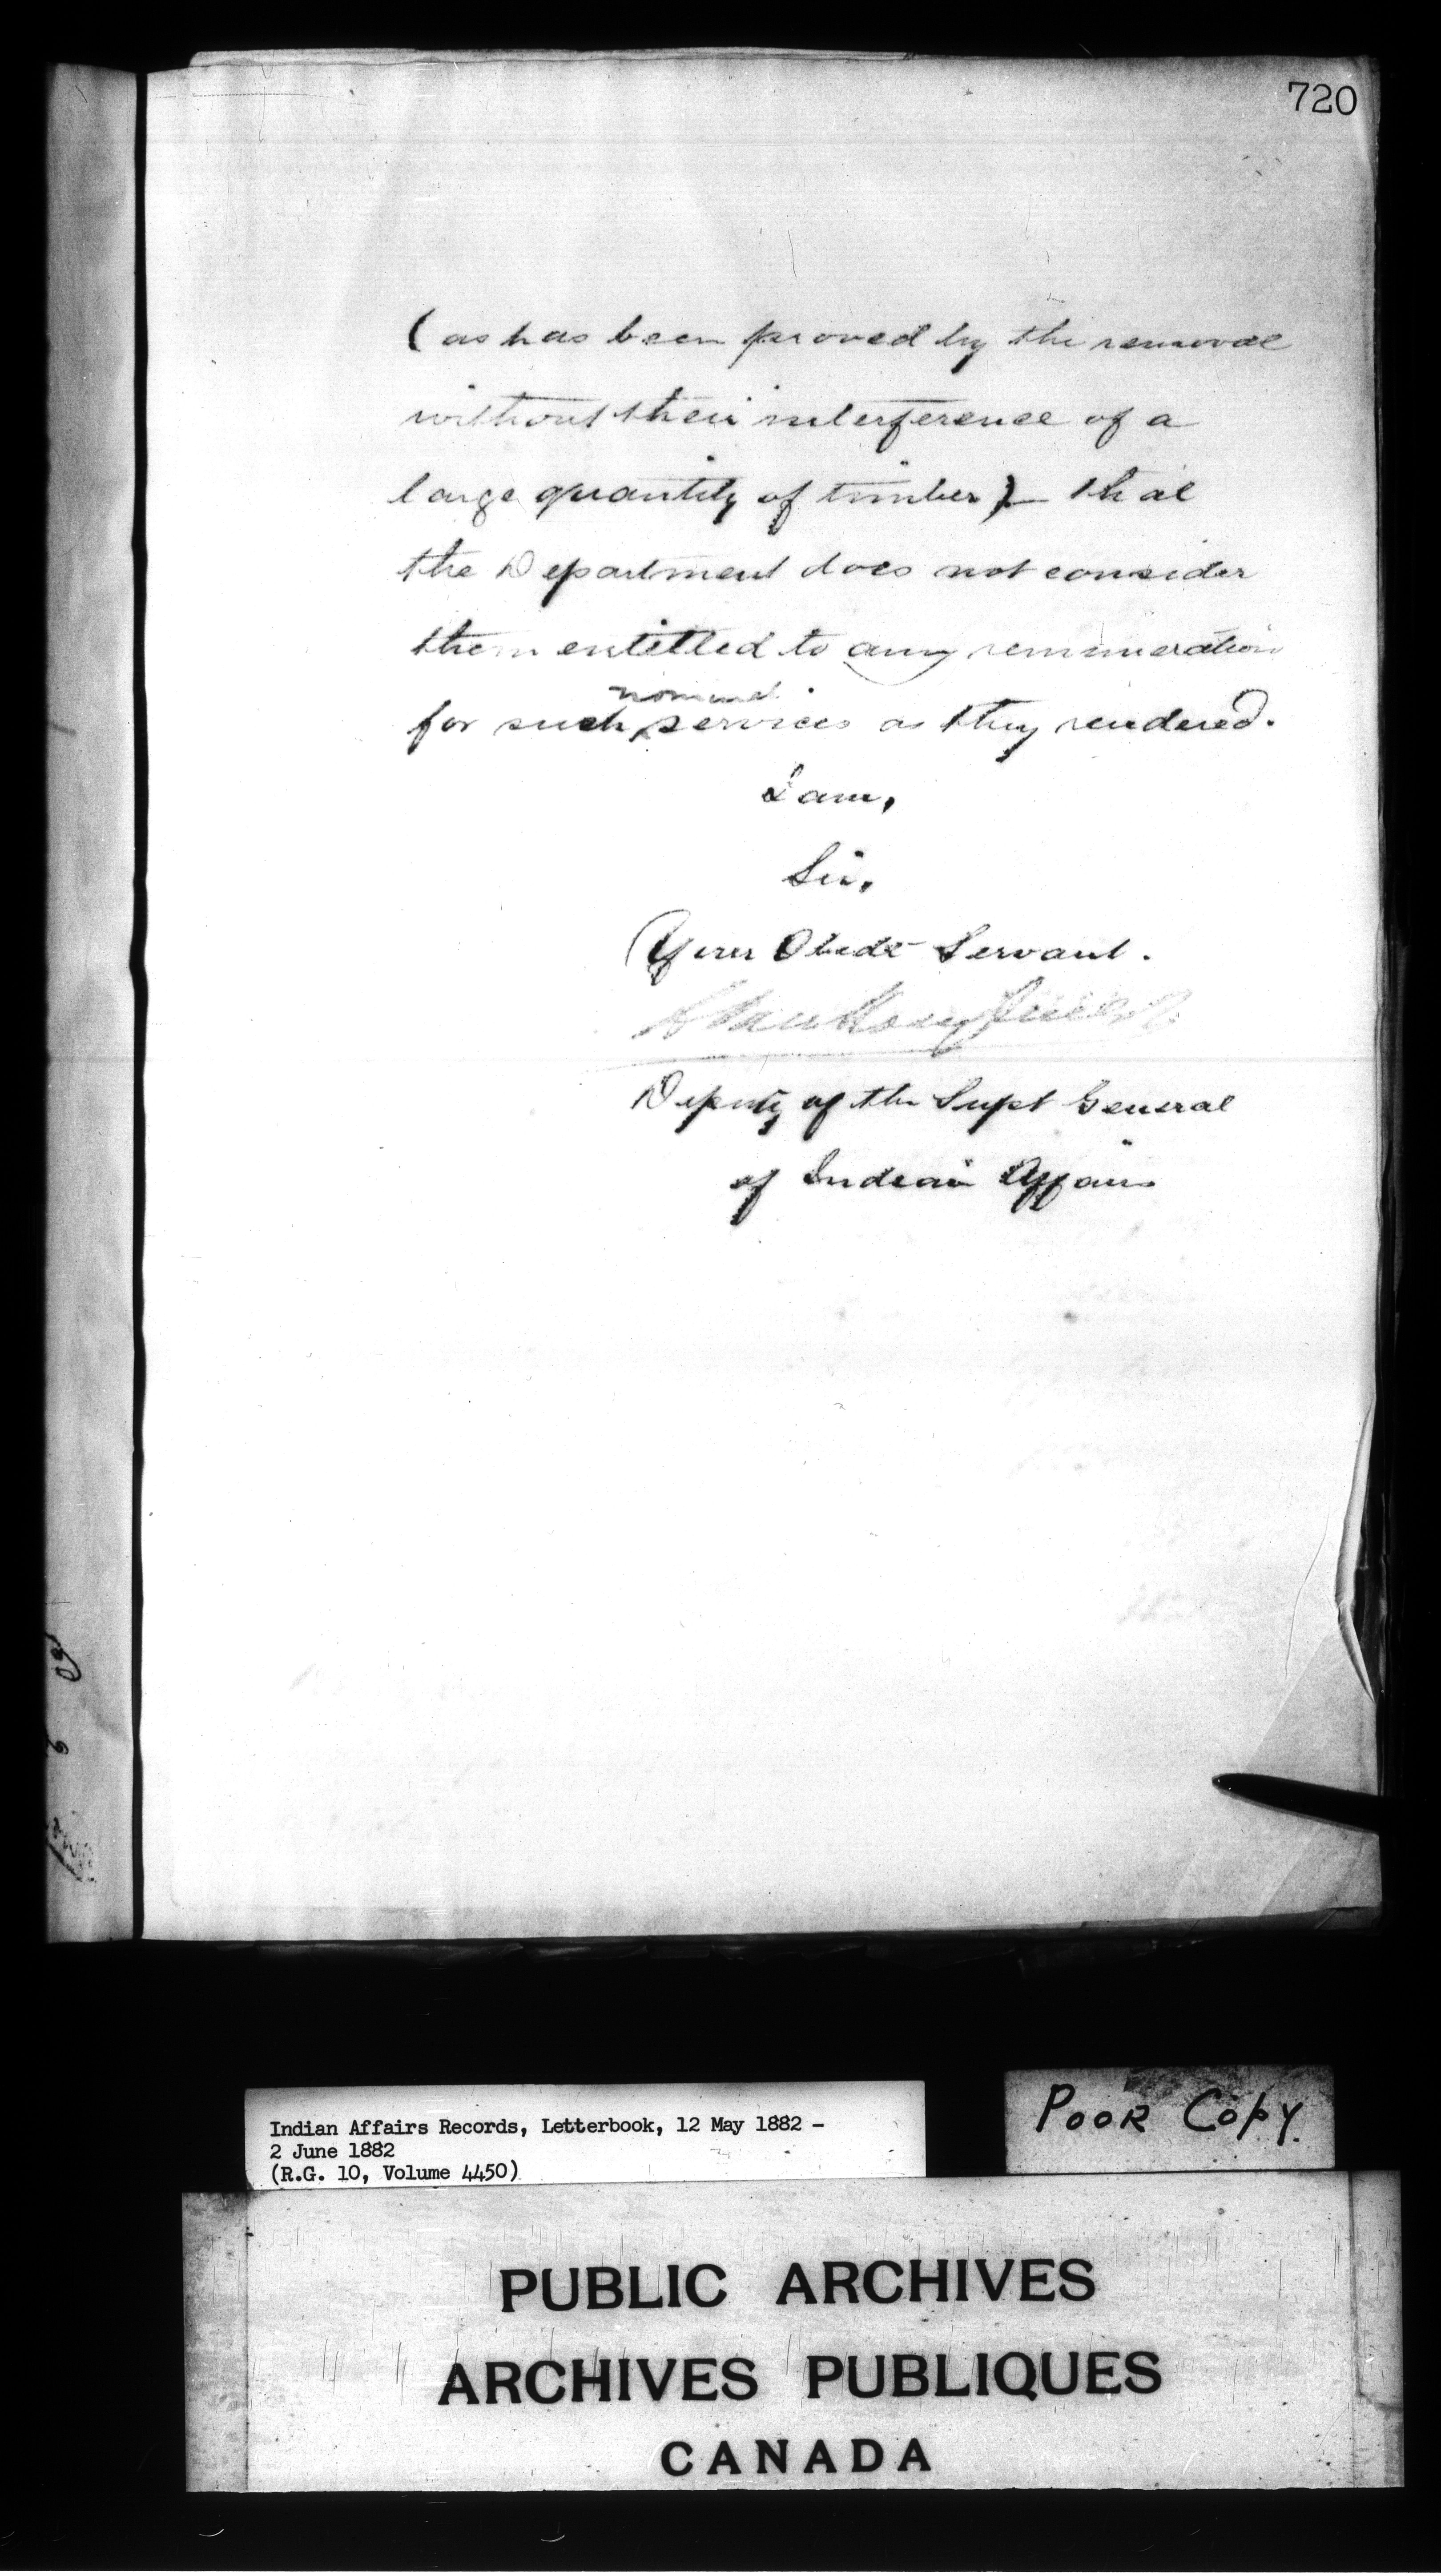 720
(as has been proved by the removal
without their interference of a
large quantity of timber) — that
the Department does not consider
them entitled to any remuneration
nominal
for such services as they rendered.
I am,
Sir,
Your Obedt Servant.
Deputy of the Supt General
of Indian Affairs
Indian Affairs Records, Letterbook, 12 May 1882 -
2 June 1882
(R.G. 10, Volume 4450)
POOR COPY.
PUBLIC ARCHIVES
ARCHIVES PUBLIQUES
CANADA